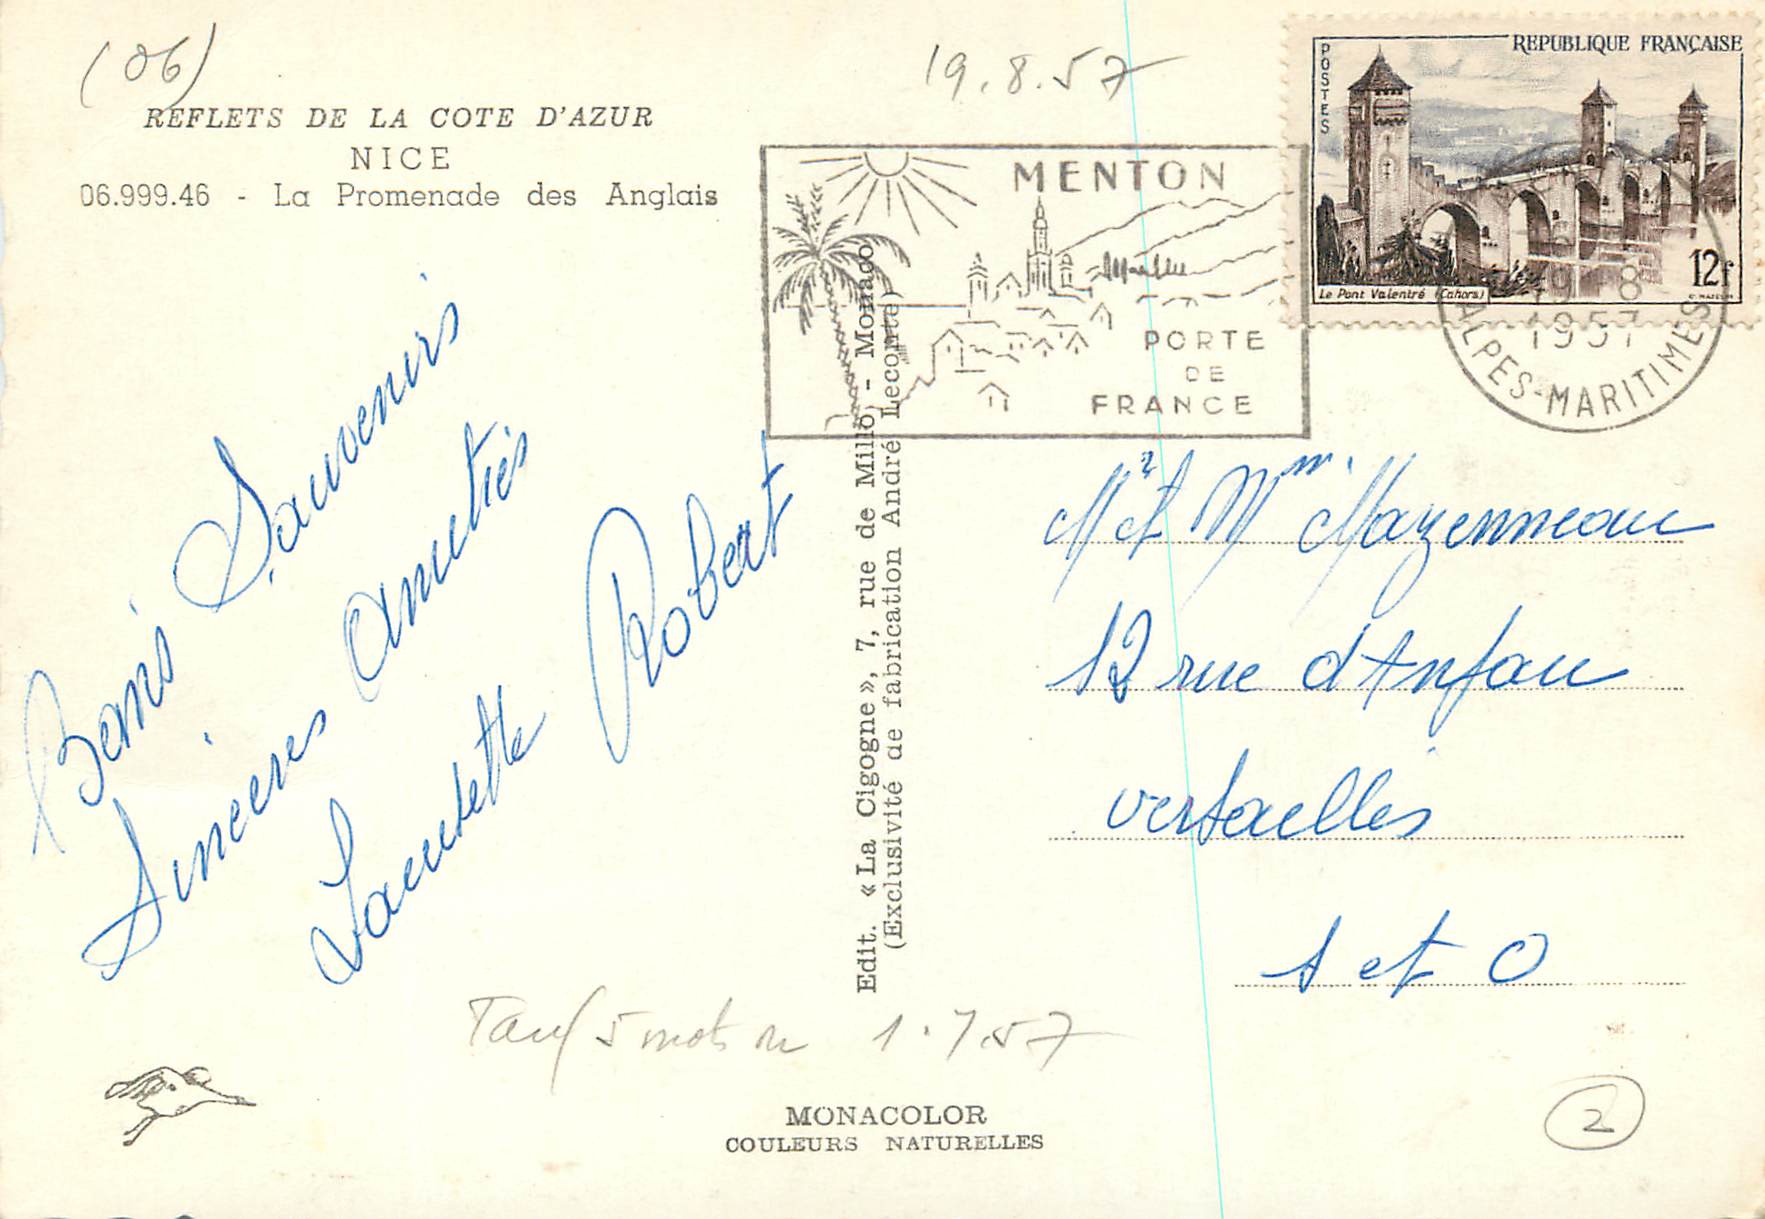 (06)
REFLETS DE LA COTE D'AZUR
NICE
06.999.46 - La Promenade des Anglais
Bons Souvenirs
Sincères Amitiés
Laudette Robert
Tarif 5 mots ou 1.7.57
MONACOLOR
COULEURS NATURELLES
Edit. «La Cigogne», 7, rue de Millo, - Monaco
(Exclusivité de fabrication André Lecomte)
19.8.57
MENTON
PORTE
DE
FRANCE
POSTES
REPUBLIQUE FRANÇAISE
12f
Le Pont Valentré (Cahors)
19 8
1957
ALPES-MARITIMES
Mr et Mme Mazenneau
12 rue d'Anjou
Versailles
S et O
2